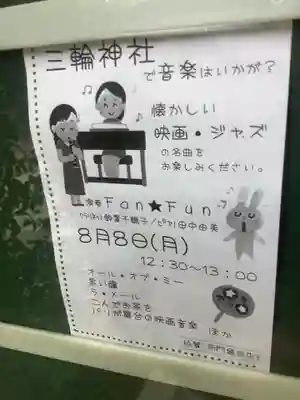 三輪神社
で音楽はいかが?
懐かしい
映画・ジャズ
の名曲を
お楽しみください。
演奏 Fan★Fun
8月8日(月)
12:30~13:00
オール・オブ・ミー
黒い瞳
ラ・メール
二人でお茶を
パリが舞台の映画音楽 ほか